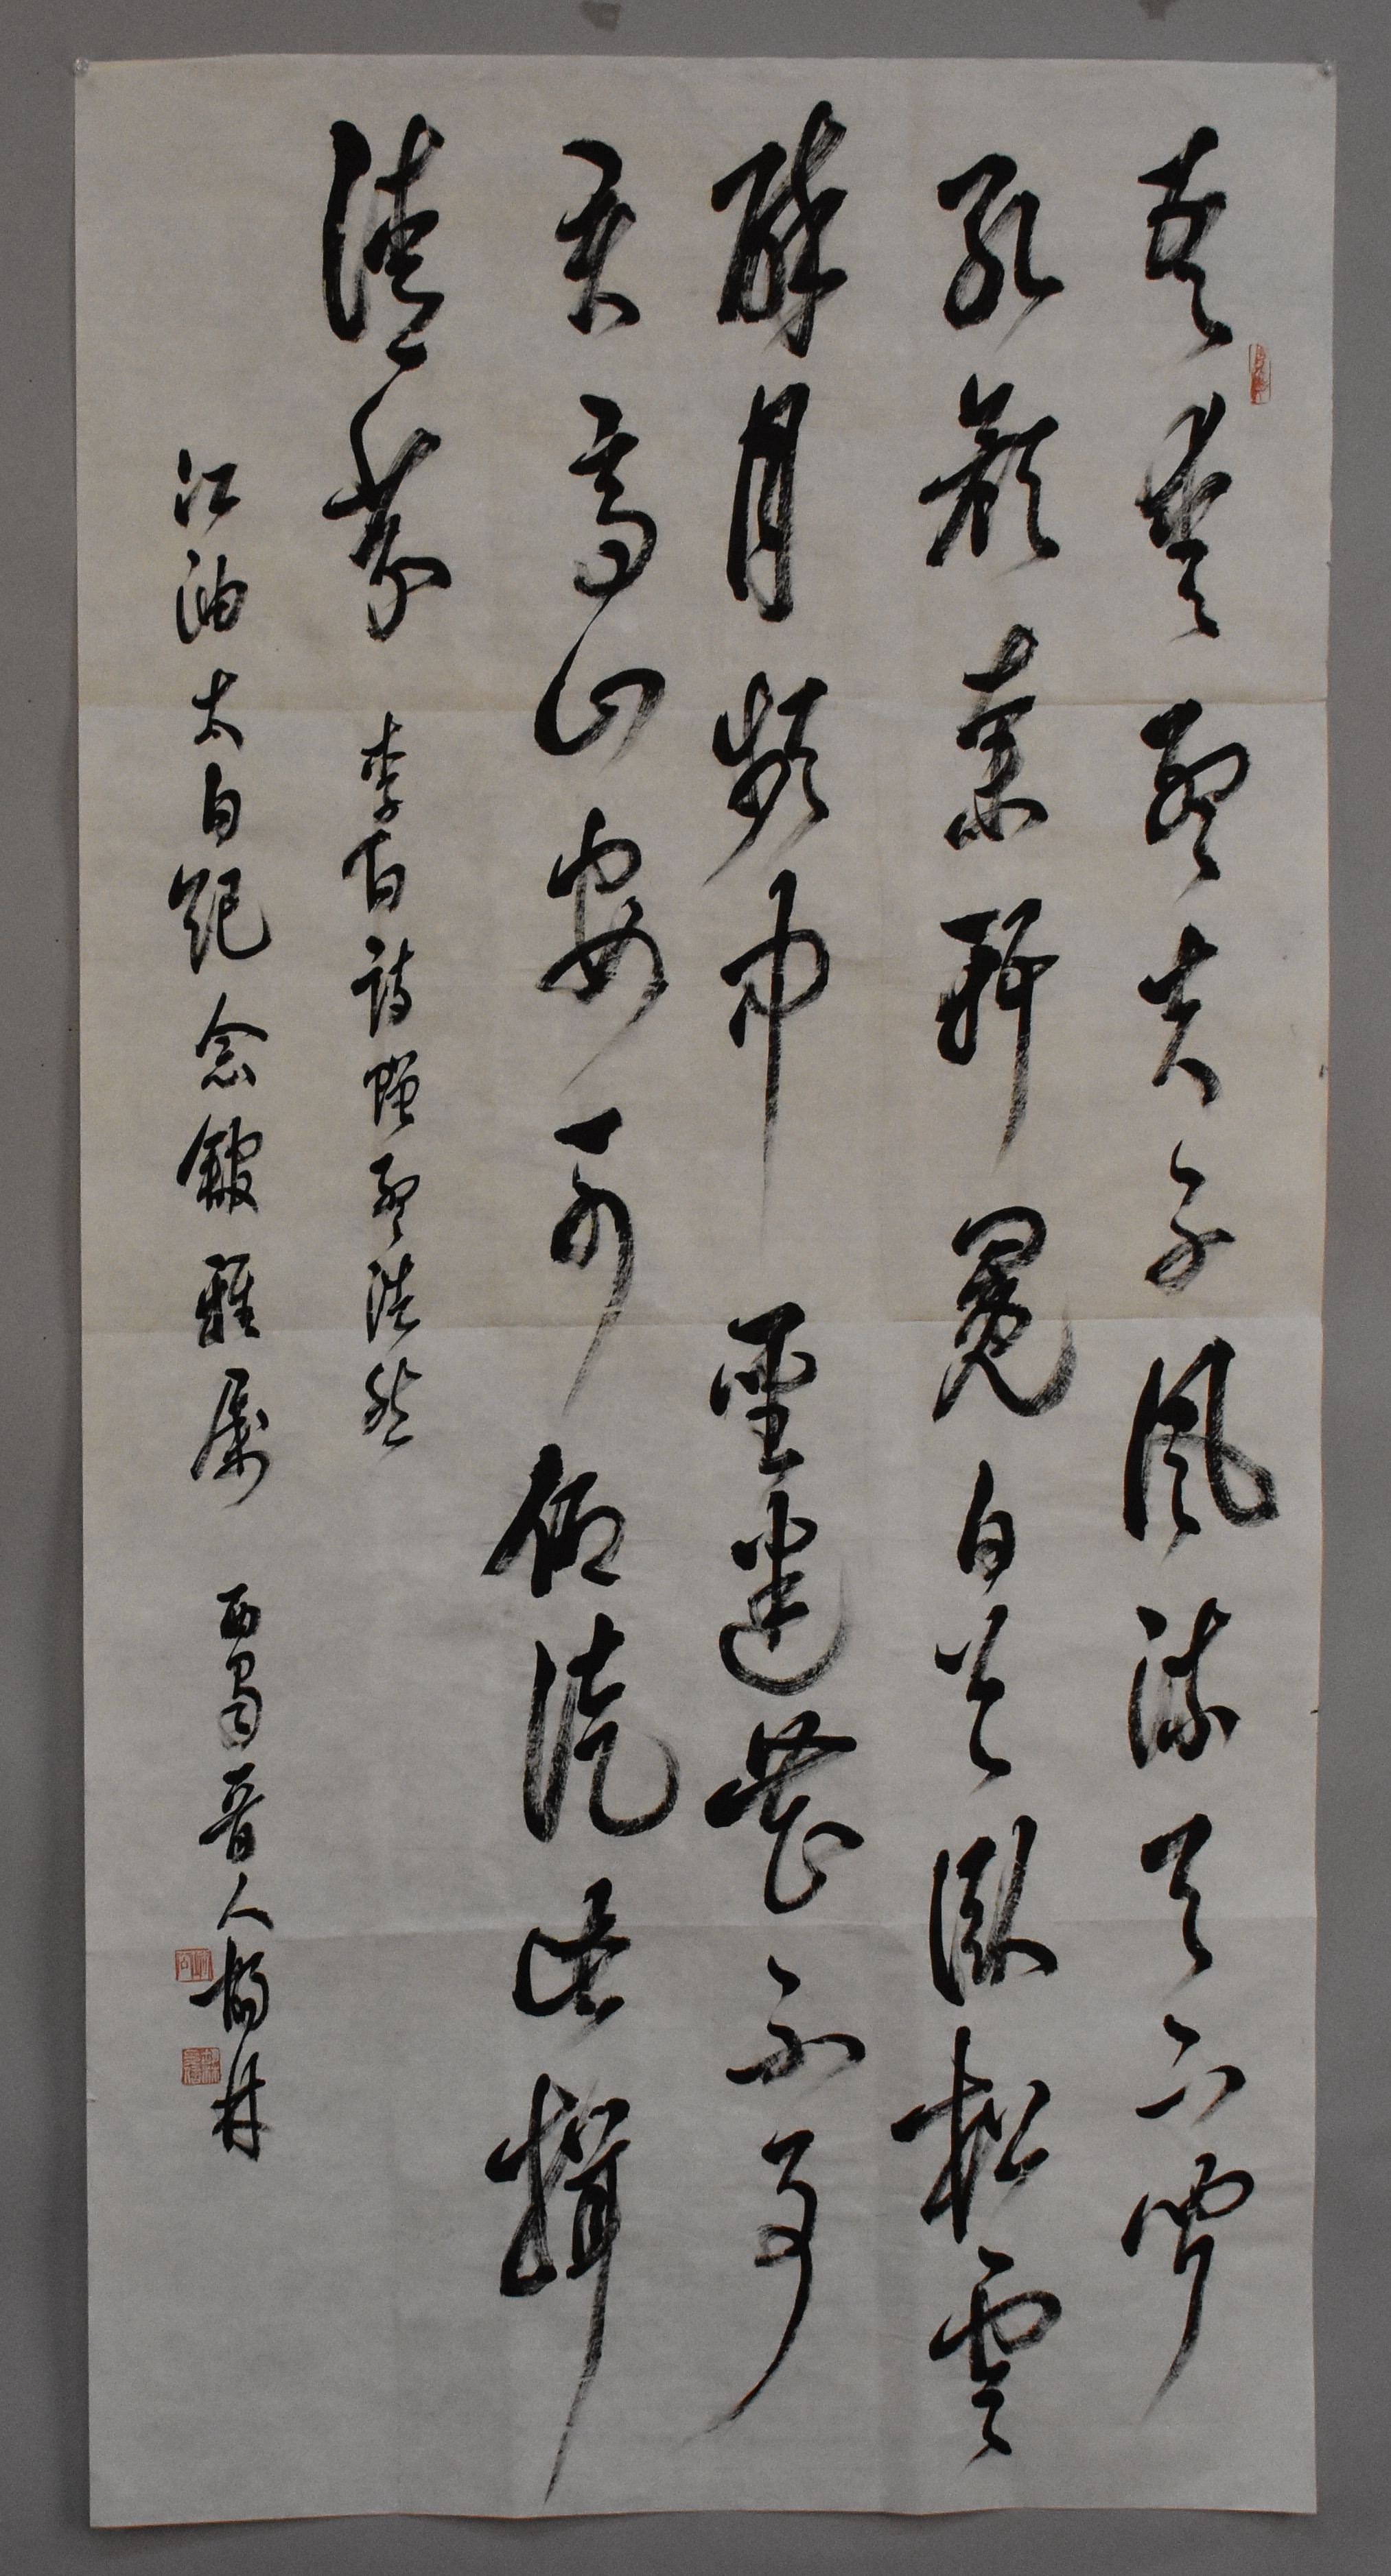 吾愛孟夫子風流天下聞
紅顏棄軒冕白首臥松雲
醉月頻中聖迷花不事
君高山安可仰徒此揖
清芬 李白詩贈孟浩然
江油太白紀念館雅属 西蜀晋人楊林